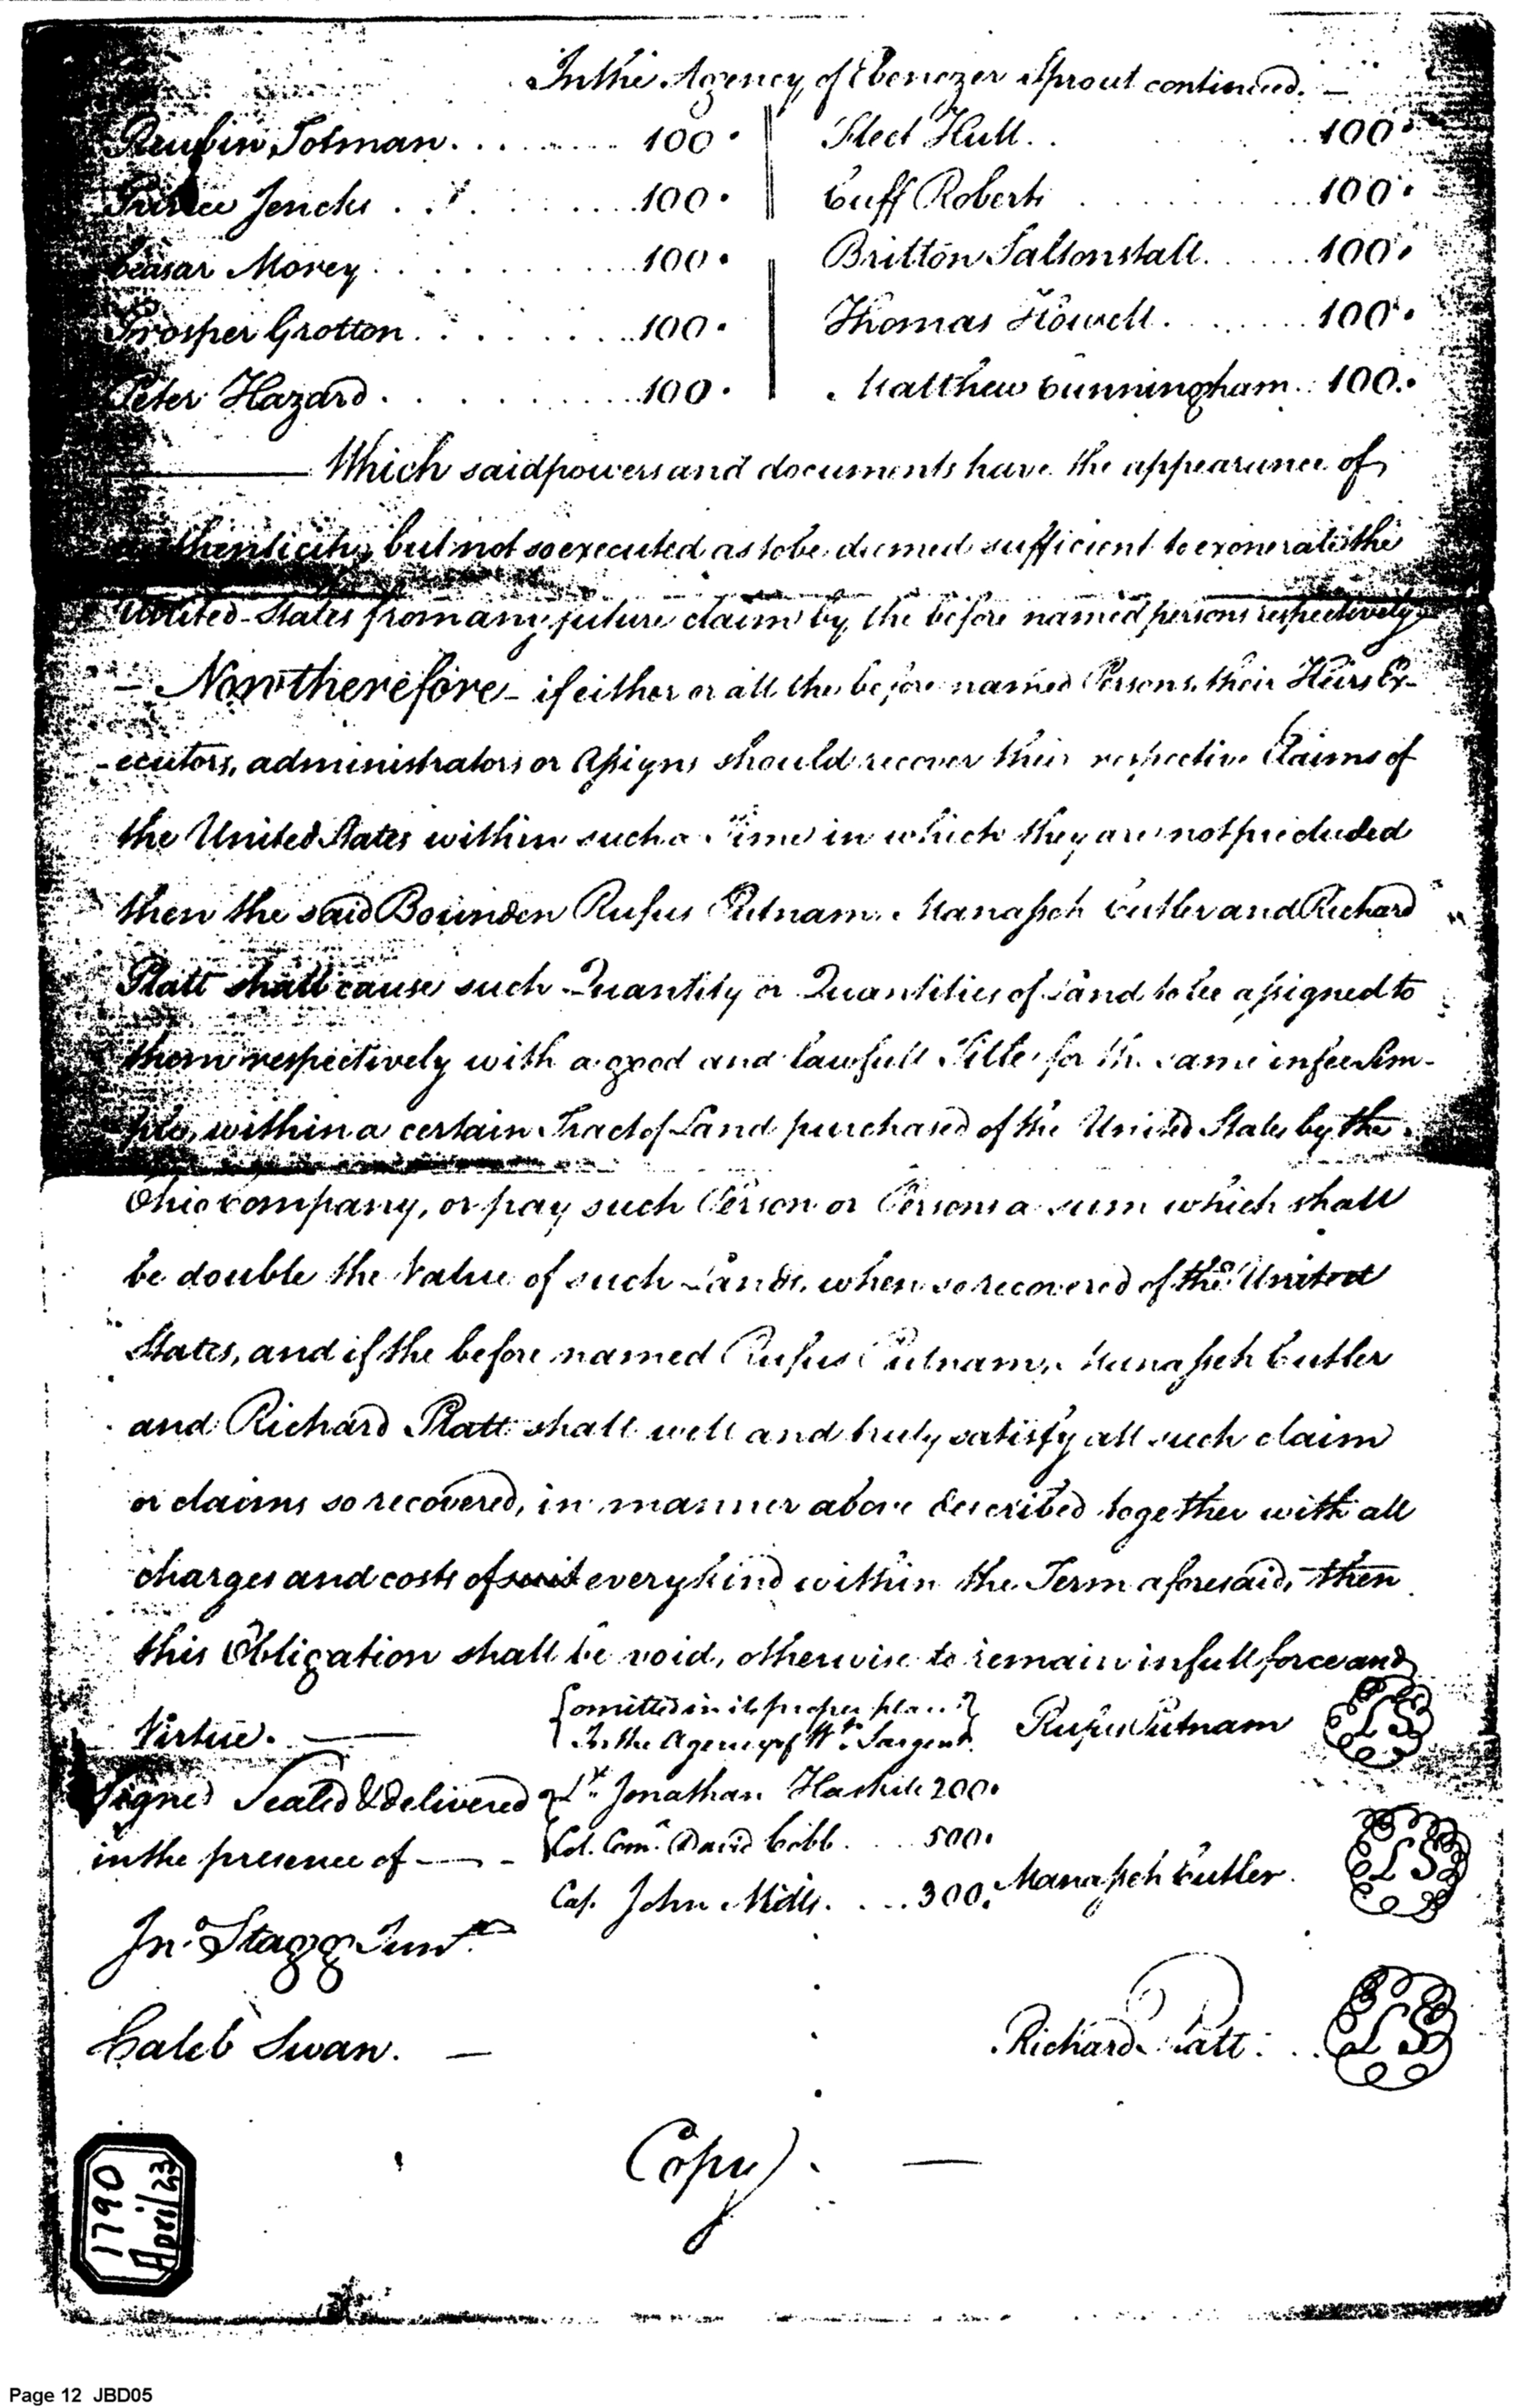 In the Agency of Ebenezer Sprout continued. —
Reubin Totman. . . . . . . . . 100. Fleet Hull. . . . 100.
Prince Jencks . . . . . . . 100. Cuff Roberts . . . . . . . 100.
Ceasar Morey . . . . . . . . . 100. Britton Saltonstall. . . . . . 100.
Prosper Grotton . . . . . . . . 100. Thomas Howell. . . . . . 100.
Peter Hazard . . . . . . . . . 100. Matthew Cunningham . . 100.
——— Which said powers and documents have the appearance of
authenticity, but not so executed as to be deemed sufficient to exonerate the
United States from any future claim by the before named persons respectively
— Now therefore — if either or all the before named Persons, their Heirs Ex-
-ecutors, administrators or Assigns should recover their respective Claims of
the United States within such a Time in which they are not precluded
then the said Bounden Rufus Putnam, Manasseh Cutler and Richard
Platt shall cause such Quantity or Quantities of Land to be assigned to
them respectively with a good and lawfull Title for the same in fee Sim-
ple, within a certain Tract of Land purchased of the United States by the
Ohio company, or pay such Person or Persons a sum which shall
be double the Value of such Lands, when so recovered of the United
States, and if the before named Rufus Putnam, Manasseh Cutler
and Richard Platt shall well and truly satisfy all such claim
or claims so recovered, in manner above described together with all
charges and costs of suit every kind within the Term aforesaid, then
this Obligation shall be void, otherwise to remain in full force and
Virtue. ——— {omitted in its proper place} Rufus Putnam LS
In the Agency of Wm. Sargent.
Signed Sealed & delivered Lt. Jonathan Haskill 200.
in the presence of — - Col. Com. David Cobb . . . 500.
Cap. John Mills. . . . 300. Manasseh Cutler. LS
Jno. Stagg Junr.
Caleb Swan. — Richard Platt. . . LS
Copy. —
1790
April 23
Page 12 JBD05